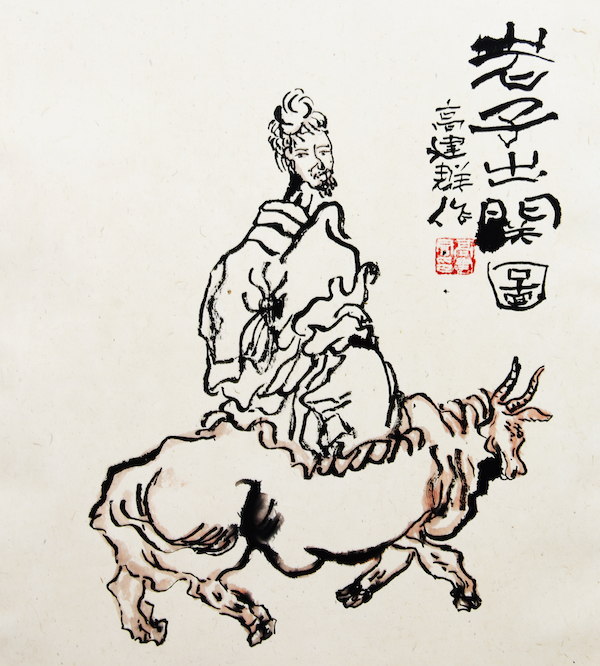 老子出関圖
高建群作